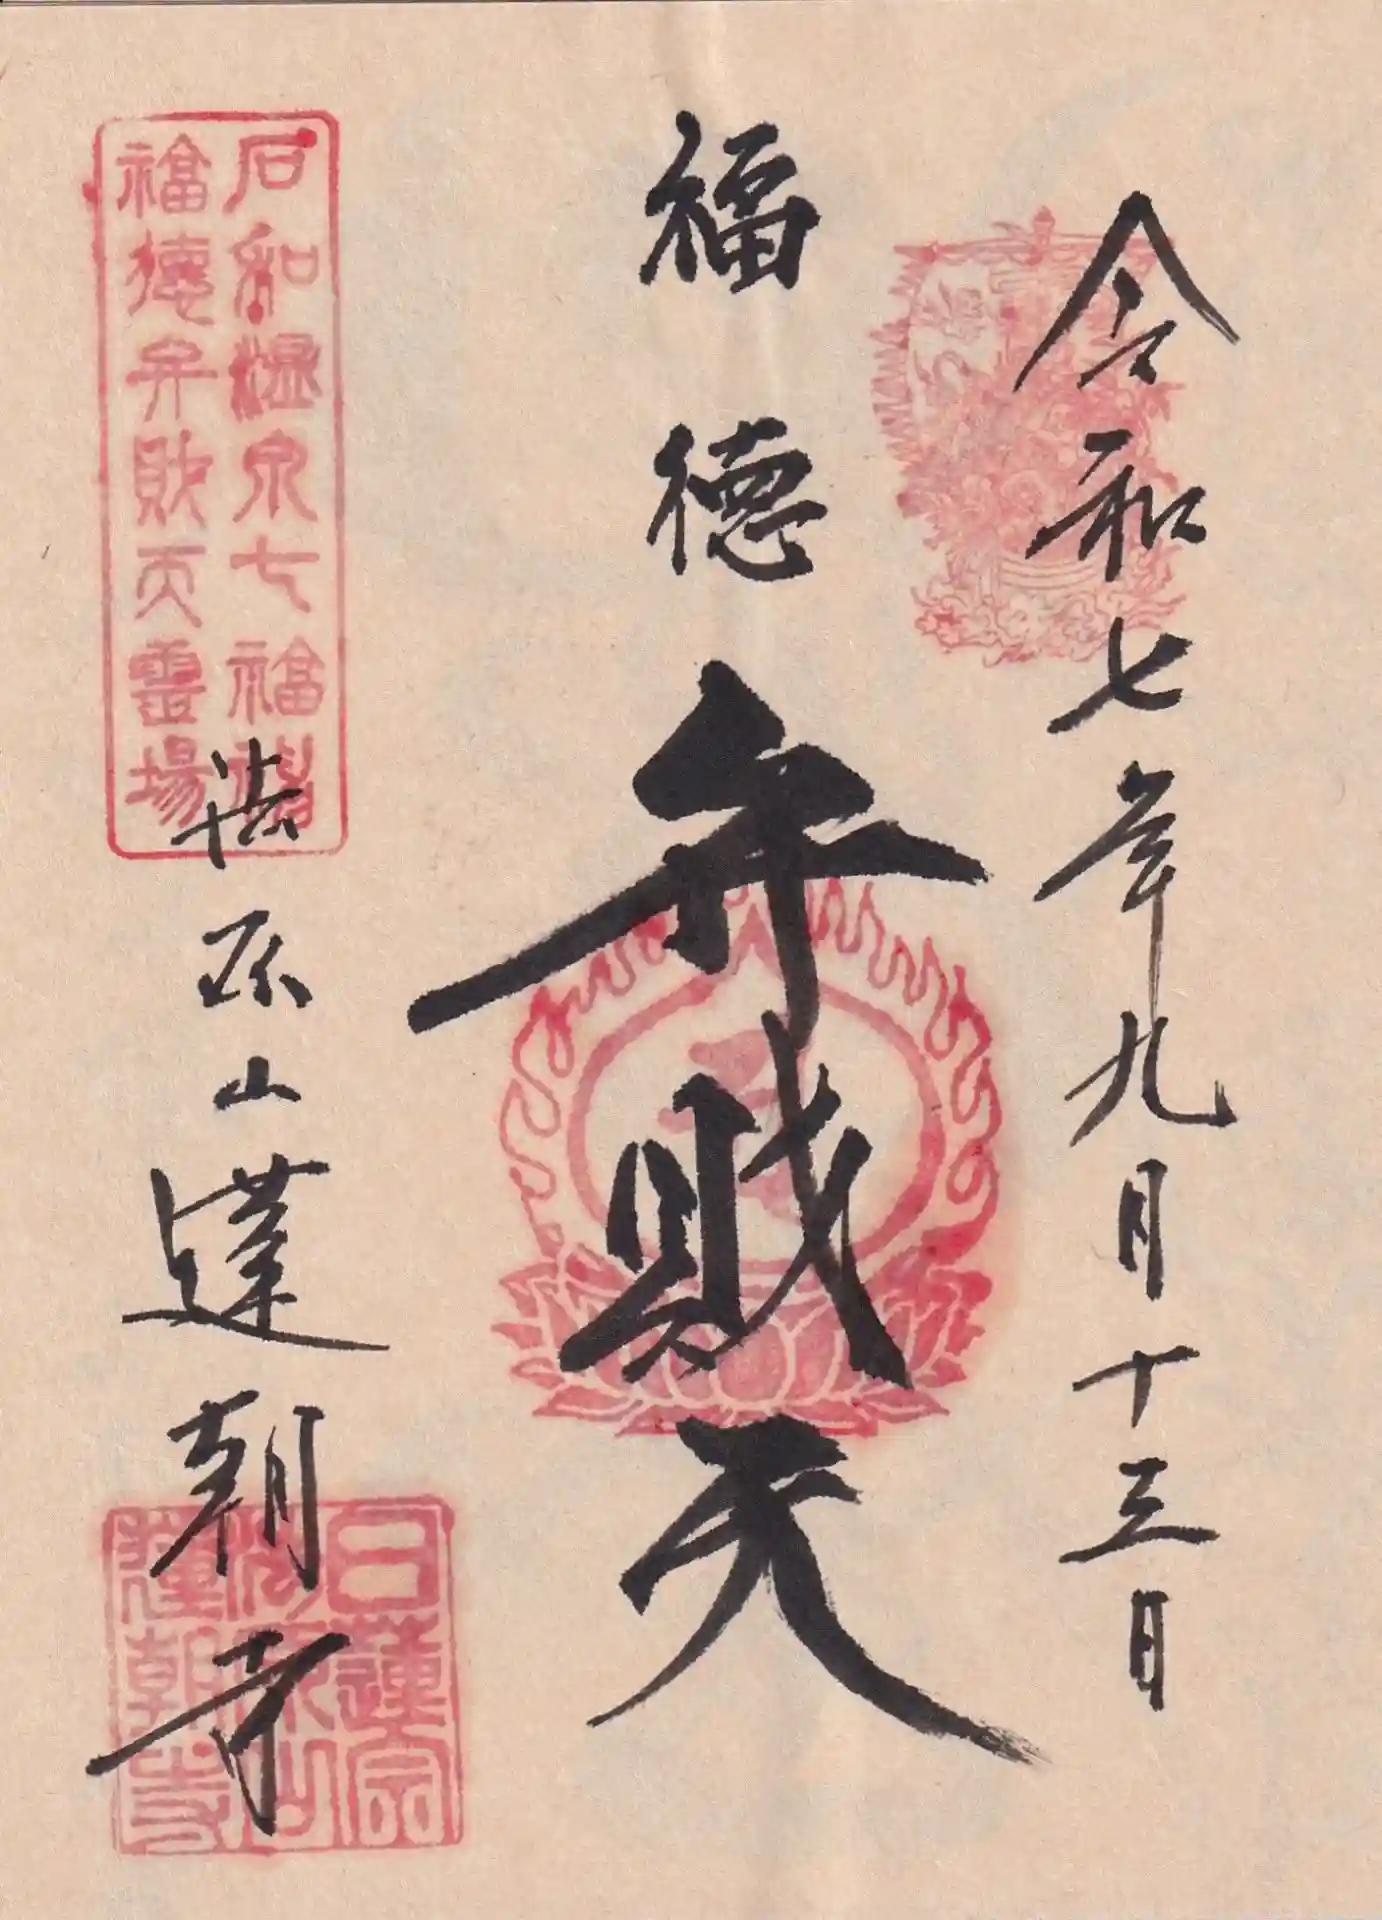 令和七年九月十三日
福徳
弁財天
石和温泉七福神
福徳弁財天霊場
法流山蓮朝寺
日蓮宗
法流山
蓮朝寺